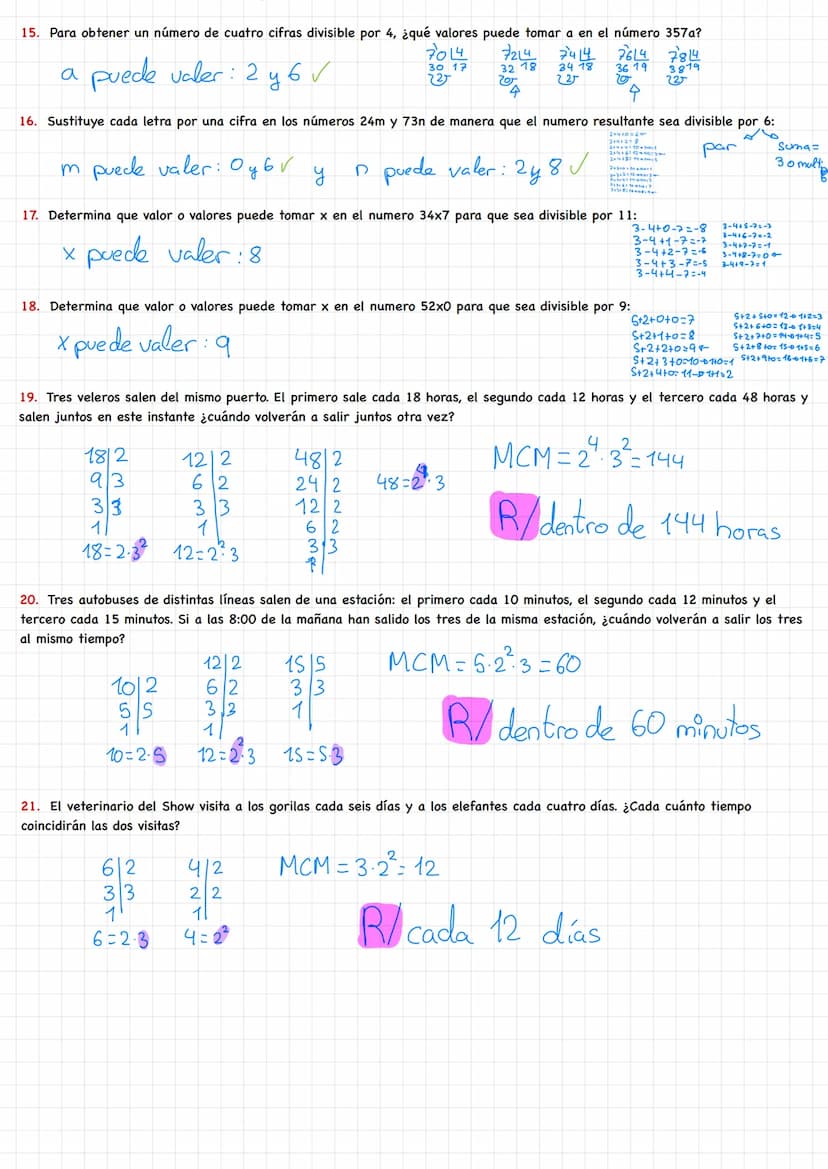 15. Para obtener un número de cuatro cifras divisible por 4, ¿qué valores puede tomar a en el número 357a?
a puede valer: 2 y 6 ✓
70|4 72|4 74|4 76|4 78|4
30 17 32 18 34 18 36 19 38 19
16. Sustituye cada letra por una cifra en los números 24m y 73n de manera que el numero resultante sea divisible por 6:
par Suma=
3 o mult
m puede valer: 0 y 6 ✓ y n puede valer: 2 y 8 ✓
17. Determina que valor o valores puede tomar x en el numero 34x7 para que sea divisible por 11:
x puede valer: 8
3-4+0-7=-8 3-4+5-7=-3
3-4+1-7=-7 3-4+6-7=-2
3-4+2-7=-6 3-4+7-7=-1
3-4+3-7=-5 3-4+8-7=0←
3-4+4-7=-4 3-4+9-7=1
18. Determina que valor o valores puede tomar x en el numero 52x0 para que sea divisible por 9:
x puede valer: 9
5+2+0+0=7
5+2+1+0=8
5+2+2+0=9←
19. Tres veleros salen del mismo puerto. El primero sale cada 18 horas, el segundo cada 12 horas y el tercero cada 48 horas y
salen juntos en este instante ¿cuándo volverán a salir juntos otra vez?
18|2 12|2 48|2 MCM=2⁴·3²=144
9|3 6|2 24|2 48=2⁴·3
3|3 3|3 12|2
1| 1 6|2 R/ dentro de 144 horas
18=2·3² 12=2²·3 3|3
1|
20. Tres autobuses de distintas líneas salen de una estación: el primero cada 10 minutos, el segundo cada 12 minutos y el
tercero cada 15 minutos. Si a las 8:00 de la mañana han salido los tres de la misma estación, ¿cuándo volverán a salir los tres
al mismo tiempo?
12|2 15|5 MCM=5·2²·3=60
10|2 6|2 3|3
5|5 3|3 1|
1 1| R/ dentro de 60 minutos
10=2·5 12=2²·3 15=5·3
21. El veterinario del Show visita a los gorilas cada seis días y a los elefantes cada cuatro días. ¿Cada cuánto tiempo
coincidirán las dos visitas?
6|2 4|2 MCM=3·2²=12
3|3 2|2
1 1|
6=2·3 4=2² R/ cada 12 días